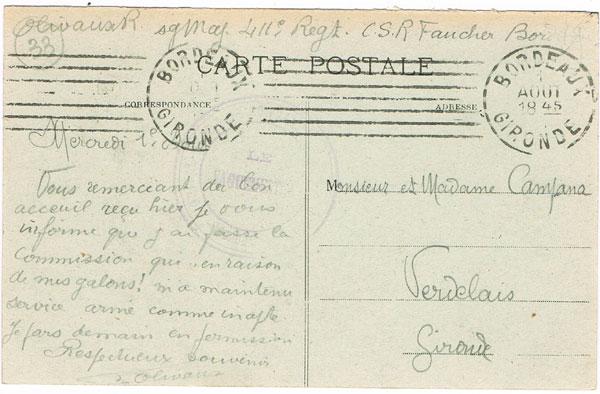 Olivaux R. sg Maj. 411e Regt. C.S.R Faucher
33
CARTE POSTALE
CORRESPONDANCE
ADRESSE
BORDEAUX
GIRONDE
BORDEAUX
AOUT
18 45
GIRONDE
LE
Mercredi 1er
Vous remerciant du bon
acceuil reçu hier je vous
informe que j'ai passé la
Commission qui en raison
de mes galons! m'a maintenu
service armé comme inapte
Je pars demain en permission
Respectueux souvenir
Olivaux
Monsieur et Madame Campana
Verdelais
Gironde